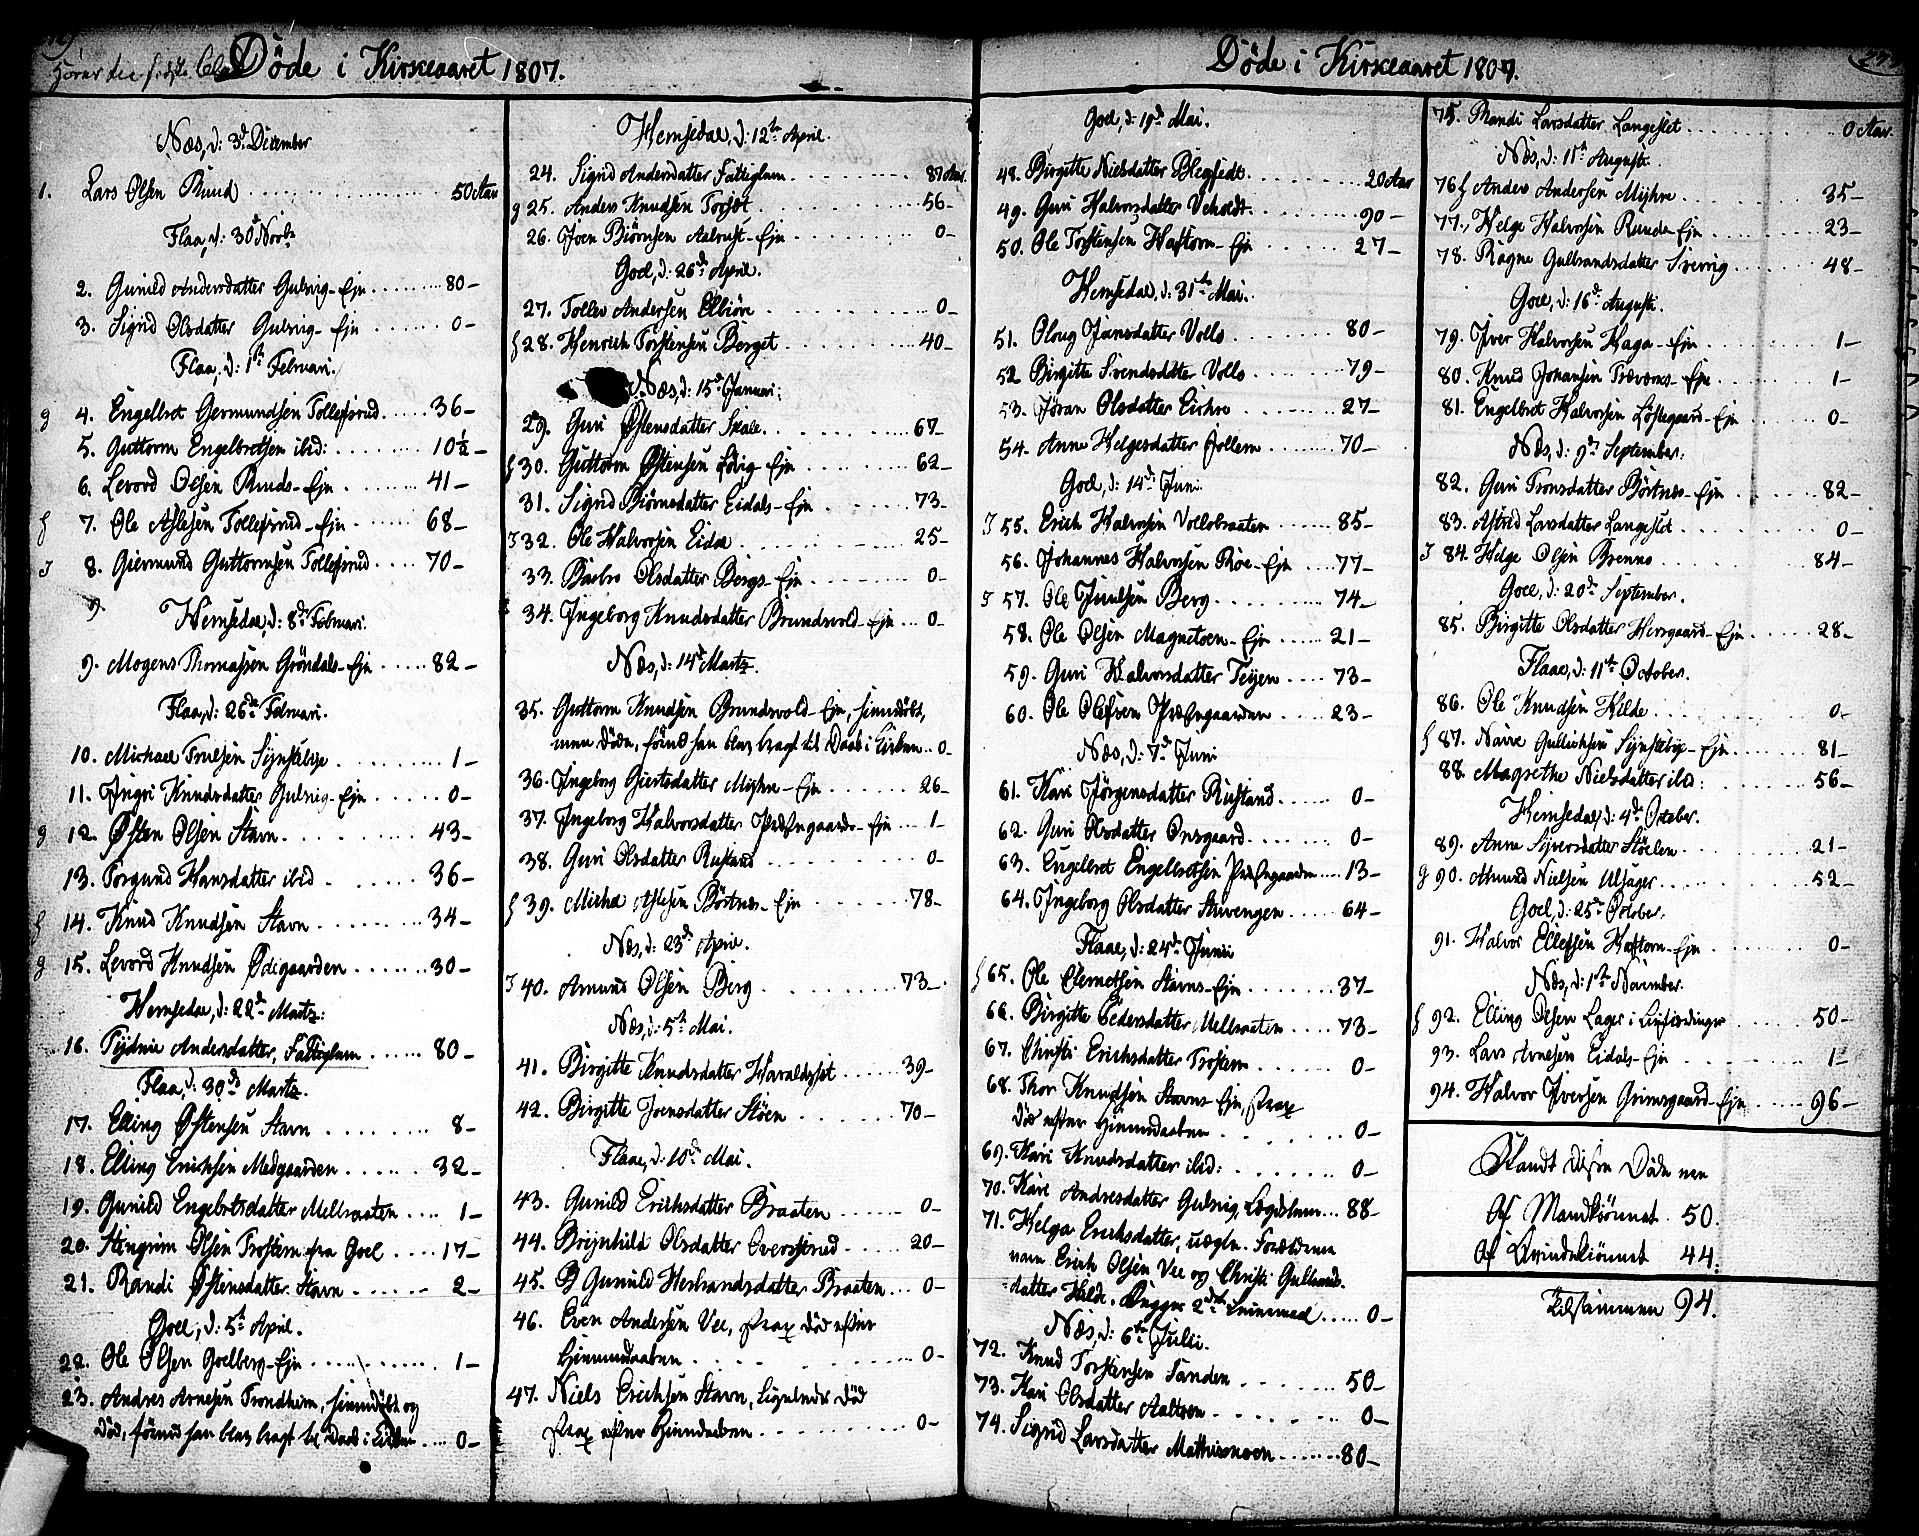 Döde i Kirkeaaret 1807.
Næs, d: 3d December
1. Lars Olsen Ruud 50 Aar
Flaa, d: 30 Novbr
2. Gunild Andersdatter Gulsvig-Ejn 80-
3. Sigrid Olsdatter Gulsvig-Ejn 0-
Flaa, d: 1ste Februari.
g 4. Engelbret Germundsen Tollefsrud 36-
5. Guttorm Engelbretsen ibid: 10½-
6. Levord Olsen Ruuds-Ejn 41-
f 7. Ole Aslesen Tollefsrud-Ejn 68-
J 8. Giermund Guttormsen Tollefsrud 70-
9.
Hemsedal, d: 8de Februari.
9. Mogens Thomassen Gröndals-Ejn 82-
Flaa, d: 26de Februari.
10. Michael Truelsen Sÿnstebÿe 1-
11. Jngri Knudsdatter Gulsvig-Ejn 0-
g 12. Østen Olsen Stavn 43-
13. Torgund Hansdatter ibid 36-
f 14. Knud Knudsen Stavn 34-
g 15. Levord Knudsen Ødegaarden 30-
Hemsedal, d: 22de Martz:
16. Andersdatter, Fattiglem 80-
Flaa, d: 30de Martz.
17. Elling Østensen Stavn 8-
18. Elling Erichsen Medgaarden 32-
19. Gunild Engebretsdatter Mellbraaten 1-
20. Stengrim Olsen Trostem fra Goel 17-
21. Randi Østensdatter Stavn 2-
Goel, d: 5te April.
22. Ole Olsen Goelberg-Ejn 1-
23. Andres Arnesen Trondheim, hjemmedöbt og
död, förend han blev bragt til Daab i Kirken 0-
Hemsedal, d: 12te April.
24. Sigrid Andersdatter Fattiglem 87 Aar.
g 25. Anders Knudsen Torset 56-
26. Joen Biörnsen Aalrust-Ejn 0-
Goel, d: 26de April.
27. Tollev Andersen Elbiörn 0-
f 28. Henrich Torstensen Berget 40-
Næs, d: 15de Januari:
29. Guri Østensdatter Skale 67-
f 30. Guttorm Østensen -Ejn 62-
31. Sigrid Biörnsdatter Eidals-Ejn 73-
J 32. Ole Halvorsen Eidal 25-
33. Barbro Olsdatter Bergs-Ejn 0-
34. Jngeborg Knudsdatter Brundsvold-Ejn 0-
Næs, d: 14de Martz.
35. Guttorm Knudsen Brundsvold-Ejn, hjemmedöbt,
men döde, förend han blev bragt til Daab i Kirken 0-
36. Jngeborg Giertsdatter Mÿhre-Ejn 26-
37. Jngeborg Halvorsdatter Præstegaards-Ejn 1-
38. Guri Olsdatter Rustand 0-
f 39. Michel Aslesen Börtnes-Ejn 78-
Næs, d: 23de April.
J 40. Amund Olsen Berg 73-
Næs, d: 5te Mai.
41. Birgitte Knudsdatter Haraldset 39-
42. Birgitte Joensdatter Stöen 70-
Flaae, d: 10de Mai.
43. Gunild Erichsdatter Braaten 0-
44. Brÿnhild Olsdatter Bversrud 20-
45. Gunild Herbrandsdatter Braaten 0-
46. Even Andersen Vee, strax död efter
Hjemmedaaben 0-
47. Niels Erichsen Stavn, ligeledes död
strax efter Hjemmedaaben 0-
Döde i Kirkeaaret 1807.
Goel, d: 19de Mai.
48. Birgitte Nielsdatter 20 Aar
49. Guri Halvorsdatter Veholdt 90-
50. Ole Torstensen Haftorn-Ejn 27-
Hemsedal, d: 31te Mai.
51. Oloug Jansdatter Volls 80-
52 Birgitte Svendsdatter Volls 79-
53. Jöran Olsdatter Eichre 27-
54. Anne Helgesdatter Jollem 70-
Goel, d: 14de Juni
J 55. Erich Halvorsen Vollobraaten 85-
56. Johannes Halvorsen Roe-Ejn 77-
J 57. Ole Juulsen Berg 74-
58. Ole Olsen Magnetoen-Ejn 21-
59. Guri Halvorsdatter Teÿen 73-
60. Ole Olefsen Præstegaarden 23-
Næs, d: 7de Juni
61. Kari Jörgensdatter Rustand 0-
62. Guri Olsdatter Onsgaard 0-
63. Engelbret Engelbretsen Præstegaarden 13-
64. Jngeborg Olsdatter Stavengen 64-
Flaae, d: 24de Junii
f 65. Ole Clemetsen Stavns-Ejn 37-
66. Birgitte Pedersdatter Mellbraaten 73-
67. Christi Erichsdatter Trostem 0-
68. Thor Knudsen Stavns-Ejn, strax
död efter Hjemmedaaben 0-
69. Kari Knudsdatter ibid: 0-
70. Kari Andresdatter Gulsvig, Lægdslem 88-
71. Helga Erichsdatter, uægte. Forældrene
vare Erich Olsen Vee og Christi Gulbrands-
datter Hilde. Begges 2det Leiermaal 0-
Næs, d: 6te Julii.
72. Knud Torstensen Sanden 50-
73. Kari Olsdatter Aaltoen 0-
74. Sigrid Larsdatter Mathismoen 80-
75. Randi Larsdatter Langeslet 0 Aar.
Næs, d: 11te Augusti.
76 f Anders Andersen Mÿhre 35-
77. Helge Halvorsen Runda-Ejn 23-
78. Ragne Gulbrandsdatter 48-
Goel, d: 16de Augusti.
79. Jver Halvorsen Haga-Ejn 1-
80. Knud Johansen Trøvoms-Ejn 1-
81. Engelbret Halvorsen Löstegaard-Ejn 0-
Næs, d: 9de September:
82. Guri Tronsdatter Börtnes-Ejn 82-
83. Astrid Larsdatter Langeslet 0-
J 84. Helge Olsen Brenno 84-
Goel, d: 20de September.
85. Birgitte Olsdatter Hersgaard-Ejn 28-
Flaae, d: 11te October.
86. Ole Knudsen Hilde 0-
f 87. Narve Gullichsen Sÿnstebÿe-Ejn 81-
88. Magrethe Nielsdatter ibid: 56-
Hemsedal, d: 4de October.
89. Anne Siversdatter Stöelen 21-
g 90. Amund Nielsen Ulsager 52-
Goel, d: 25de October:
91. Halvor Ellefsen Haftorn-Ejn 0-
Næs, d: 1ste November.
f 92. Elling Olsen Lager i 50-
93. Lars Arnesen Eidals-Ejn 1-
94. Halvor Jversen Grimsgaard-Ejn 96-
Blandt disse Döde vare
Af Mandkiönnet 50.
Af Qvindekiönnet 44.
Tilsammen 94.